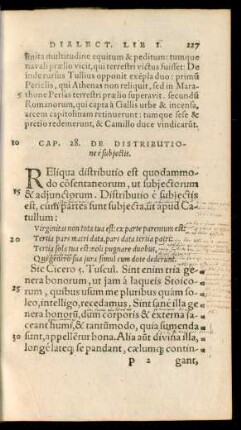 DIALECT. LIB I. 227
finita multitudine equitum & peditum: tumque
navali prælio vicit, qui terrestri victus fuisset: De
inde rursus Tullius opponit exēpla duo: primū
Periclis, qui Athenas non reliquit, sed in Mara-
5 thone Persas terrestri prælio superavit. secundū
Romanorum, qui capta à Gallis urbe & incensa,
arcem capitolinam retinuerunt: tum sese &
pretio redemerunt, & Camillo duce vindicarūt.
10 CAP. 28. DE DISTRIBUTIO-
ne è subjectis.
RELiqua distributio est quodammo-
do cōsentaneorum, ut subjectorum
15 & adjunctorum. Distributio è subjectis
est, cum partes sunt subjecta, ut apud Ca-
tullum:
Virginitas non tota tua est: ex parte parentum est:
Tertia pars matri data, pars data tertia patri:
20 Tertia sola tua est: noli pugnare duobus,
Qui genero sua jura simul cum dote dederunt.
Sic Cicero 5. Tuscul. Sint enim tria ge-
nera bonorum, ut jam à laqueis Stoico-
rum, quibus usum me pluribus quàm so-
25 leo, intelligo, recedamus, Sint sanè illa ge-
nera bonorū, dum corporis & externa ja-
ceant humi, & tantūmodo, quia sumenda
sunt, appellētur bona. Alia aūt divina illa,
longè lateq; se pandant, cælumq; contin-
P 2 gant,